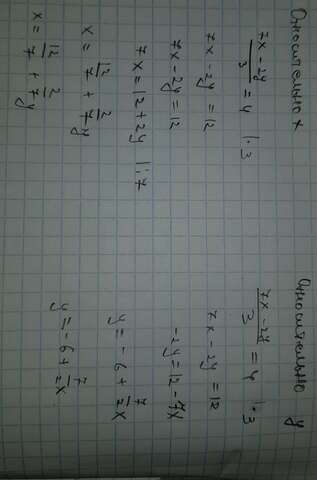 Относительно x
7x - 2y / 3 = 4 | · 3
7x - 2y = 12
7x - 2y = 12
7x = 12 + 2y | : 7
x = 12/7 + 2/7 y
x = 12/7 + 2/7 y
Относительно y
7x - 2y / 3 = 4 | · 3
7x - 2y = 12
-2y = 12 - 7x
y = -6 + 7/2 x
y = -6 + 7/2 x